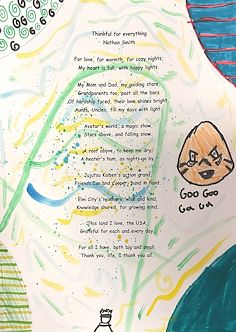 Thankful for everything
Nathan Smith
For love, for warmth, for cozy nights;
My heart is full, with happy lights.
My Mom and Dad, my guiding stars
Grandparents too, past all the bars
Of hardship faced, their love shines bright
Aunts, Uncles, fill my days with light.
Avatar's world, a magic show,
Stars above, and falling snow.
A roof above, to keep me dry,
A heater's hum, as nights go by
Jujutsu Kaisen's action grand,
Friends Ian and Cooper, hand in hand.
Elm City's teachers, wise and kind,
Knowledge shared, for growing mind.
This land I love, the USA,
Grateful for each and every day.
For all I have, both big and small,
Thank you, life, I thank you all.
Goo Goo
Ga Ga